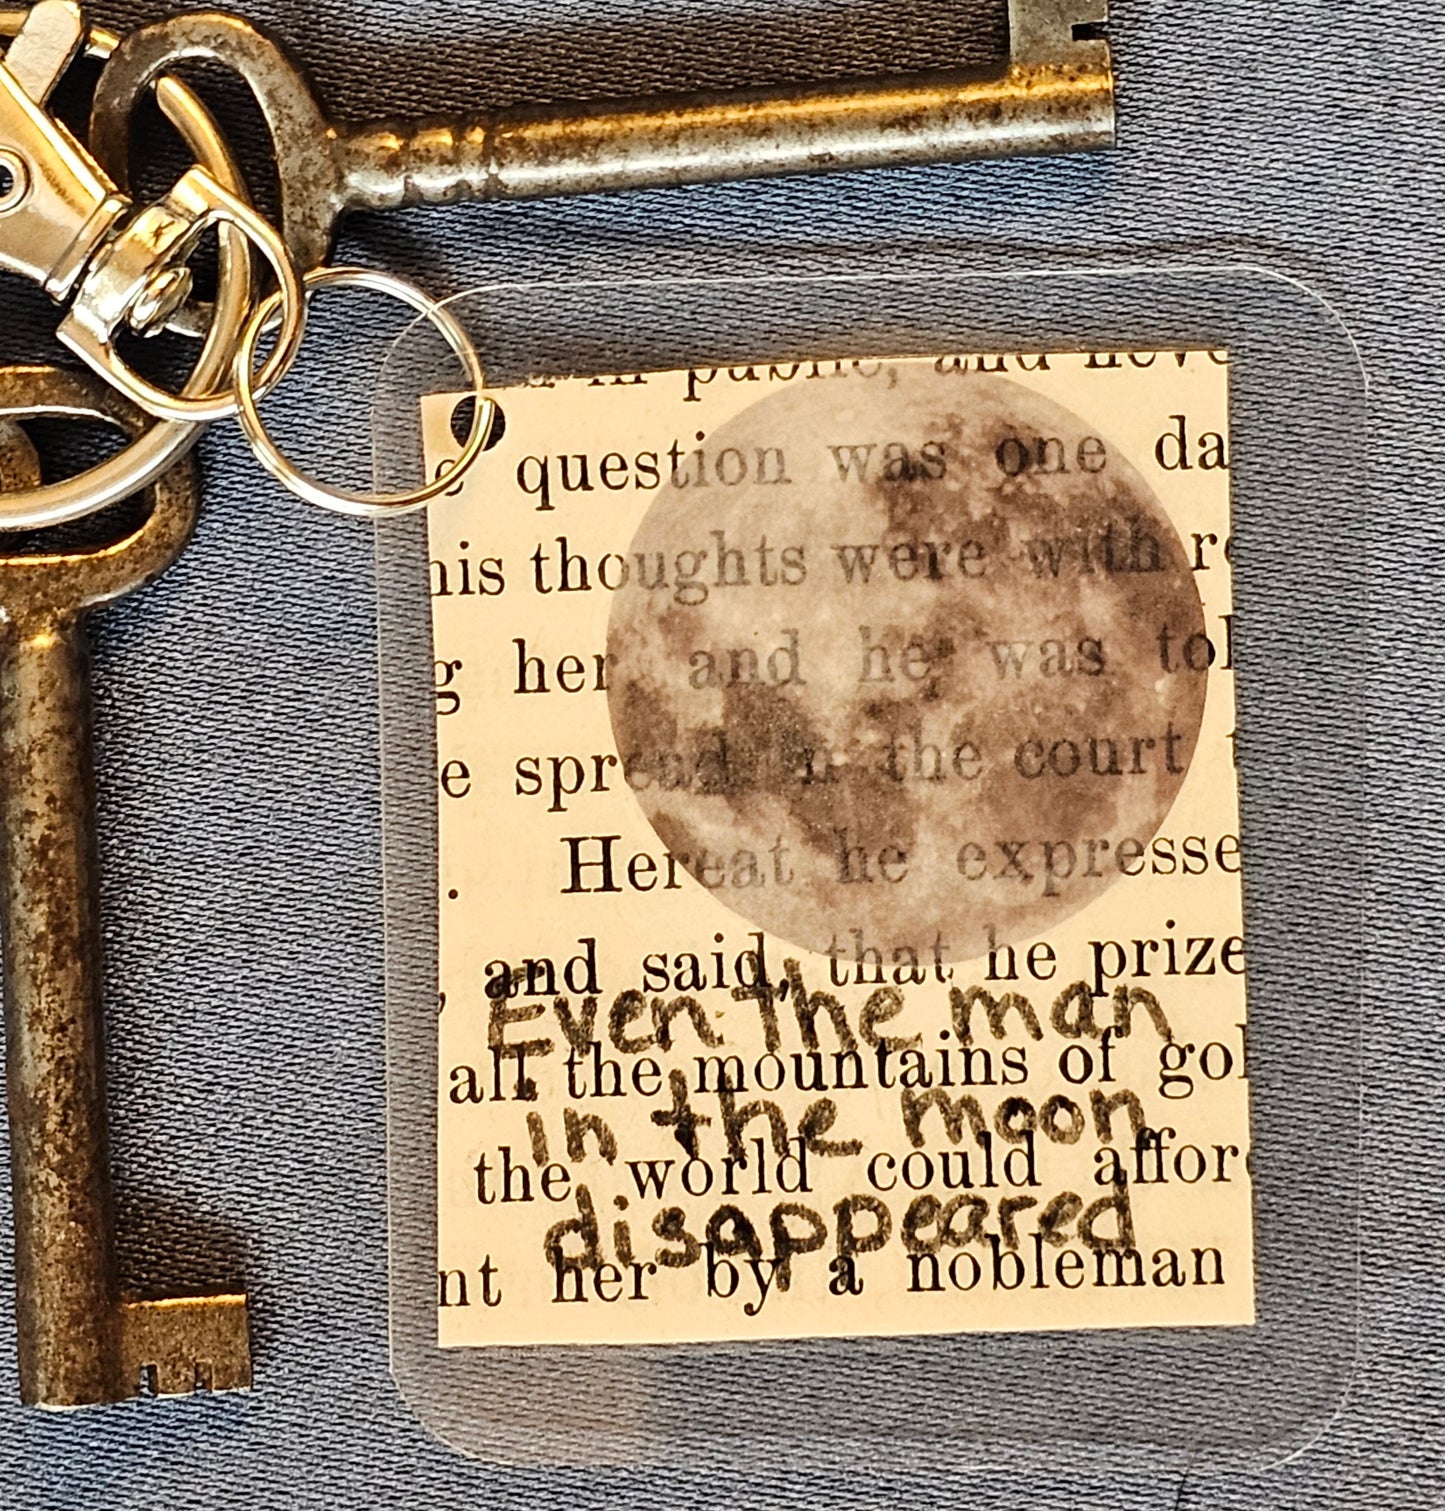 in public, and neve
e question was one da
his thoughts were with re
g her and he was tol
e spread in the court t
. Hereat he expresse
, and said, that he prize
Even the man
all the mountains of gol
in the moon
the world could affor
disappeared
nt her by a nobleman